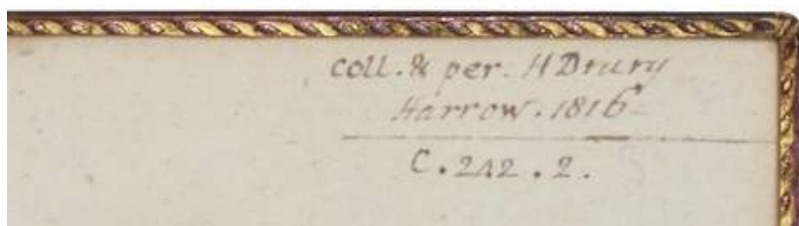 coll. & per. H Drury
Harrow. 1816
C. 242. 2.